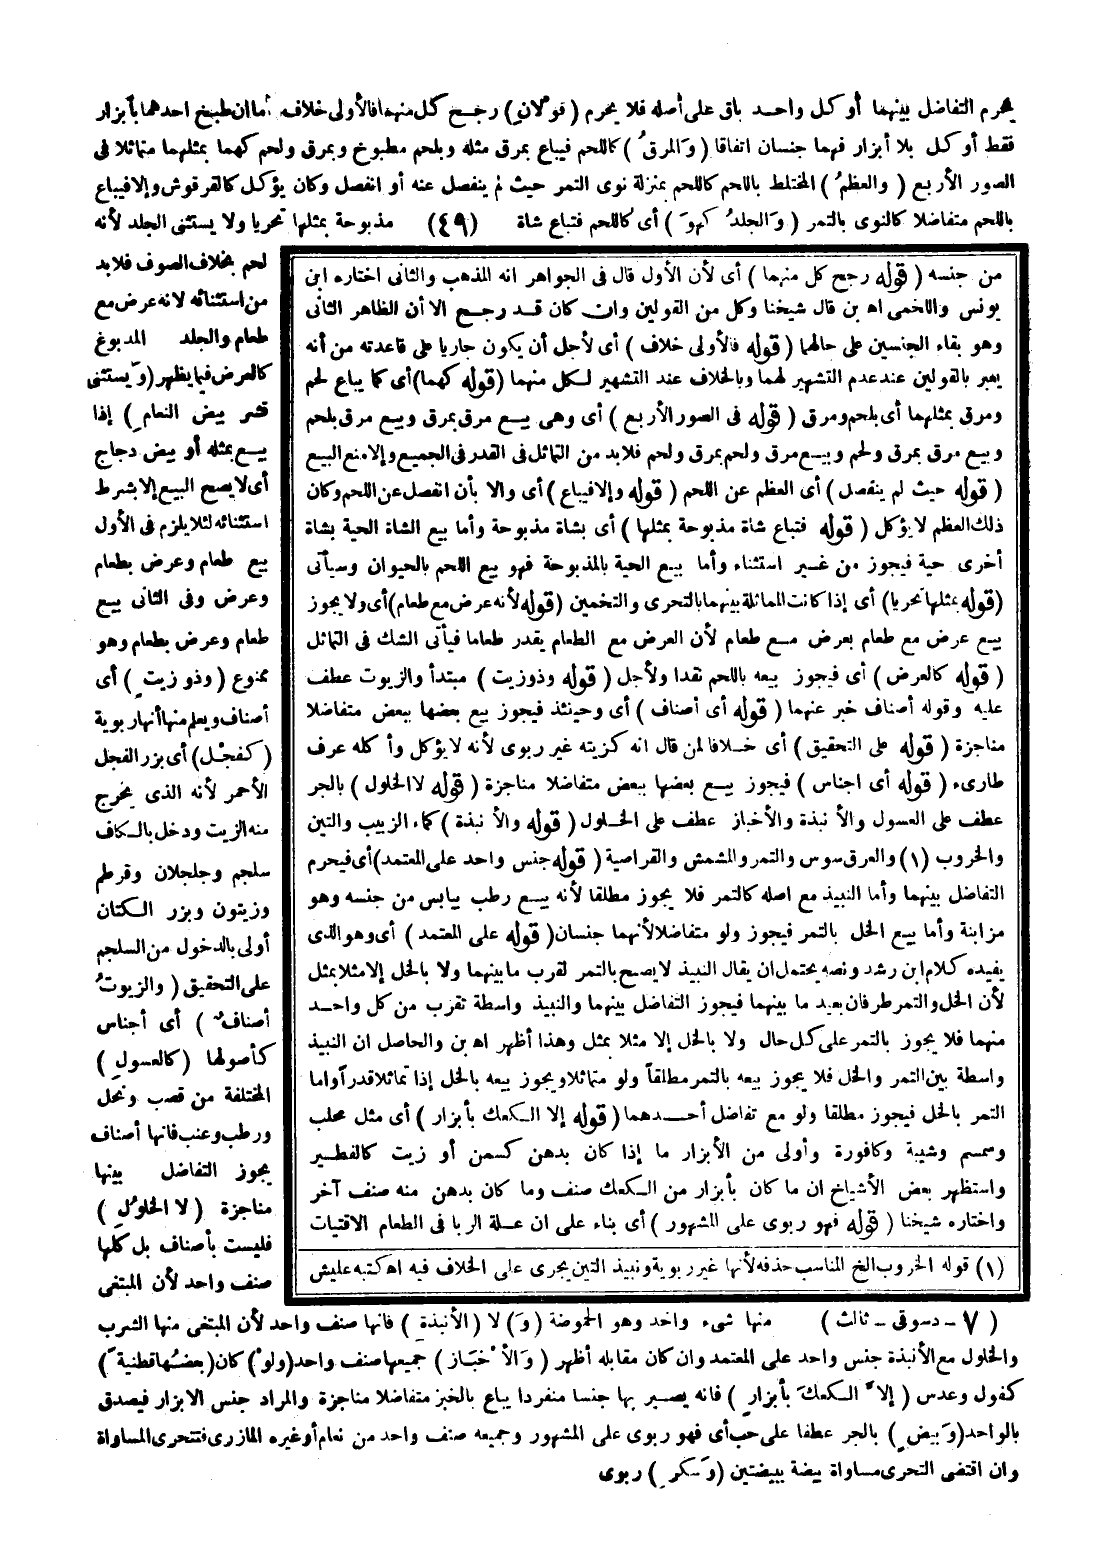 يحرم التفاضل بينهما أو كل واحد باق على أصله فلا يحرم ( قولان ) رجح كل منهما فالأولى خلاف. أما ان طبخ احدهما بأبزار
فقط أو كل بلا أبزار فهما جنسان اتفاقا ( وَالمرقُ ) كاللحم فيباع بمرق مثله وبلحم مطبوخ وبمرق ولحم كهما بمثلهما متماثلا فى
الصور الأربع ( والعظمُ ) المختلط باللحم كاللحم بمنزلة نوى التمر حيث لم ينفصل عنه أو انفصل وكان يؤكل كالقرقوش وإلا فيباع
باللحم متفاضلا كالنوى بالتمر ( وَالجلدُ كهوَ ) أى كاللحم فتباع شاة (٤٩) مذبوحة بمثلها تحريا ولا يستثنى الجلد لأنه
لحم بخلاف الصوف فلابد
من استثنائه لانه عرض مع
طعام والجلد المدبوغ
كالعرض فيما يظهر (وَيستثنى
قشر بيض النعامِ ) إذا
بيع بمثله أو بيض دجاج
أى لا يصح البيع إلا بشرط
استثنائه لئلا يلزم فى الأول
بيع طعام وعرض بطعام
وعرض وفى الثانى بيع
طعام وعرض بطعام وهو
ممنوع ( وذو زيتٍ ) أى
أصناف ويعلم منها أنها ربوية
( كفجل ) أى بزر الفجل
الأحمر لأنه الذى يخرج
منه الزيت ودخل بالكاف
سلجم وجلجلان وقرطم
وزيتون وبزر الكتان
أولى بالدخول من السلجم
على التحقيق ( والزيوتُ
أصنافٌ ) أى أجناس
كأصولها ( كالعسولِ )
المختلفة من قصب ونحل
ورطب وعنب فانها أصناف
يجوز التفاضل بينها
مناجزة ( لا الخلولِ )
فليست بأصناف بل كلها
صنف واحد لأن المبتغى
من جنسه ( قوله رجح كل منهما ) أى لأن الأول قال فى الجواهر انه المذهب والثانى اختاره ابن
يونس واللخمى اه بن قال شيخنا وكل من القولين وان كان قد رجح الا أن الظاهر الثانى
وهو بقاء الجنسين على حالهما ( قوله فالأولى خلاف ) أى لأجل أن يكون جاريا على قاعدته من أنه
يعبر بالقولين عند عدم التشهير لهما وبالخلاف عند التشهير لكل منهما (قوله كهما) أى كما يباع لحم
ومرق بمثلهما أى بلحم ومرق ( قوله فى الصور الأربع ) أى وهى بيع مرق بمرق وبيع مرق بلحم
وبيع مرق بمرق ولحم وبيع مرق ولحم بمرق ولحم فلابد من التماثل فى القدر فى الجميع وإلا منع البيع
( قوله حيث لم ينفصل ) أى العظم عن اللحم ( قوله وإلا فيباع ) أى والا بأن انفصل عن اللحم وكان
ذلك العظم لا يؤكل ( قوله فتباع شاة مذبوحة بمثلها ) أى بشاة مذبوحة وأما بيع الشاة الحية بشاة
أخرى حية فيجوز من غير استثناء وأما بيع الحية بالمذبوحة فهو بيع اللحم بالحيوان وسيأتى
(قوله بمثلها تحريا) أى إذا كانت المماثلة بينهما بالتحرى والتخمين (قوله لأنه عرض مع طعام) أى ولا يجوز
بيع عرض مع طعام بعرض مع طعام لأن العرض مع الطعام يقدر طعاما فيأتى الشك فى التماثل
( قوله كالعرض ) أى فيجوز بيعه باللحم نقدا ولأجل ( قوله وذوزيت ) مبتدأ والزيوت عطف
عليه وقوله أصناف خبر عنهما ( قوله أى أصناف ) أى وحينئذ فيجوز بيع بعضها ببعض متفاضلا
مناجزة ( قوله على التحقيق ) أى خلافا لمن قال انه كزيته غير ربوى لأنه لا يؤكل وأكله عرف
طارىء ( قوله أى اجناس ) فيجوز بيع بعضها ببعض متفاضلا مناجزة ( قوله لا الخلول ) بالجر
عطف على العسول والأنبذة والأخباز عطف على الخلول ( قوله والأنبذة ) كماء الزبيب والتين
والخروب (١) والعرق سوس والتمر والمشمش والقراصية ( قوله جنس واحد على المعتمد) أى فيحرم
التفاضل بينهما وأما النبيذ مع اصله كالتمر فلا يجوز مطلقا لأنه بيع رطب بيابس من جنسه وهو
مزابنة وأما بيع الخل بالتمر فيجوز ولو متفاضلا لأنهما جنسان ( قوله على المعتمد ) أى وهو الذى
يفيده كلام ابن رشد ونصه يحتمل ان يقال النبيذ لا يصح بالتمر لقرب ما بينهما ولا بالخل إلا مثلا بمثل
لأن الخل والتمر طرفان بعيد ما بينهما فيجوز التفاضل بينهما والنبيذ واسطة تقرب من كل واحد
منهما فلا يجوز بالتمر على كل حال ولا بالخل إلا مثلا بمثل وهذا أظهر اه بن والحاصل ان النبيذ
واسطة بين التمر والخل فلا يجوز بيعه بالتمر مطلقاً ولو متماثلا ويجوز بيعه بالخل إذا تماثلا قدرا واما
التمر بالخل فيجوز مطلقا ولو مع تفاضل أحدهما ( قوله إلا الكعك بأبزار ) أى مثل محلب
وسمسم وشيبة وكافورة وأولى من الأبزار ما إذا كان بدهن كسمن أو زيت كالفطير
واستظهر بعض الأشياخ ان ما كان بأبزار من الكعك صنف وما كان بدهن منه صنف آخر
واختاره شيخنا ( قوله فهو ربوى على المشهور ) أى بناء على ان علة الربا فى الطعام الاقتيات
(١) قوله الخروب الخ المناسب حذفه لأنها غير ربوية ونبيذ التين يجرى على الخلاف فيه اه كتبه عليش
( ٧ - دسوقى - ثالث ) منها شىء واحد وهو الحموضة (وَ) لا ( الأنبذةِ ) فانها صنف واحد لأن المبتغى منها الشرب
والخلول مع الأنبذة جنس واحد على المعتمد وان كان مقابله أظهر ( وَالأخبَاز ) جميعها صنف واحد (ولو) كان (بعضُها قطنيةً )
كفول وعدس ( إلا الكعكَ بأبزارٍ ) فانه يصير بها جنسا منفردا يباع بالخبز متفاضلا مناجزة والمراد جنس الابزار فيصدق
بالواحد (وَبيضٍ ) بالجر عطفا على حب أى فهو ربوى على المشهور وجميعه صنف واحد من نعام أو غيره المازرى فتتحرى المساواة
وان اقتضى التحرى مساواة بيضة ببيضتين (وَسكرٍ ) ربوى